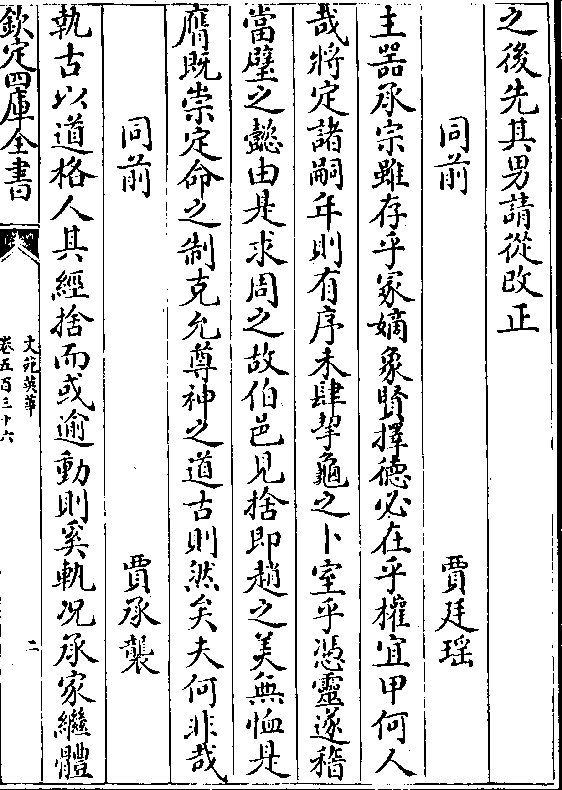 之後先其男請從改正
同前 賈廷瑶
主器承宗雖存乎冢嫡象賢擇德必在乎權宜甲何人
哉將定諸嗣年則有序未肆挈龜之卜室乎憑靈遂稽
當璧之懿由是求周之故伯邑見捨即趙之美無恤是
膺既崇定命之制克允尊神之道古則然矣夫何非哉
同前 賈承襲
執古以道格人其經捨而或逾動則奚執况承家繼體
欽定四庫全書
文苑英華
卷五百三十六
二